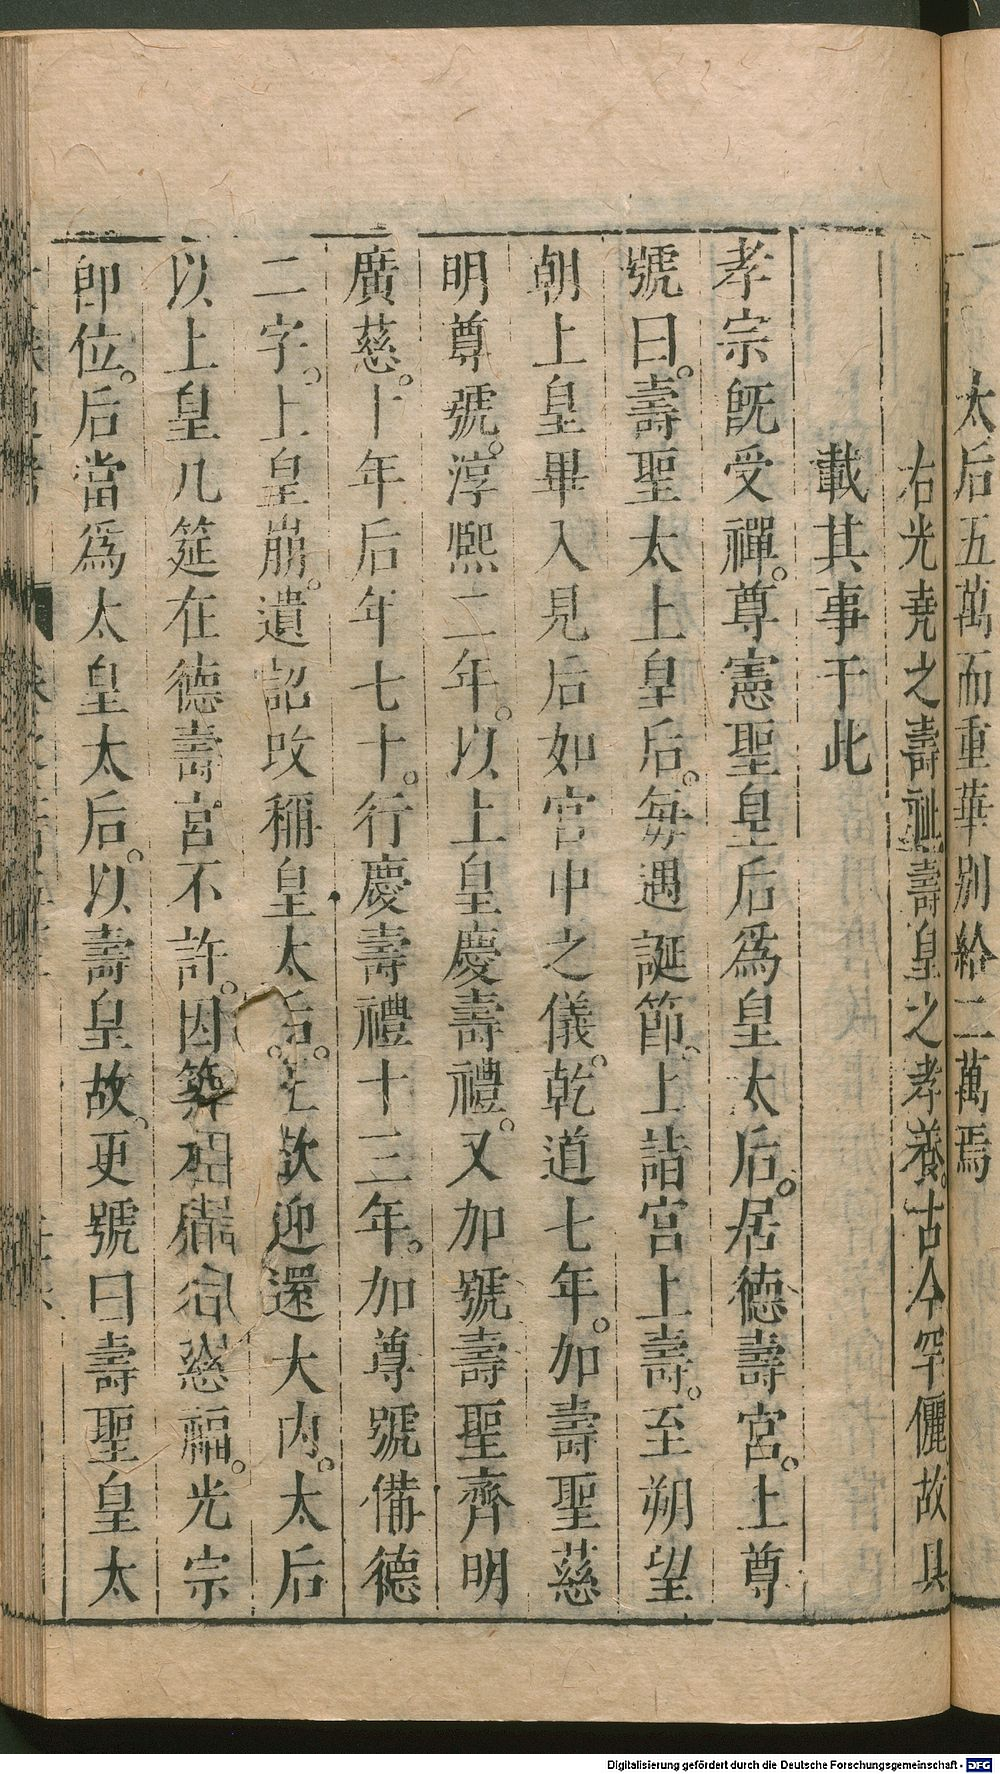 太后五萬而重華別給二萬焉
右光堯之壽祉壽皇之孝養。古今罕儷故具
載其事于此
孝宗既受禪。尊憲聖皇后爲皇太后。居德壽宮。上尊
號曰。壽聖太上皇后。每遇誕節。上詣宮上壽。至朔望
朝上皇畢入見后如宮中之儀。乾道七年。加壽聖慈
明尊號。淳熙二年。以上皇慶壽禮。又加號壽聖齊明
廣慈。十年后年七十。行慶壽禮十三年。加尊號備德
二字。上皇崩。遺詔改稱皇太后。上欲迎還大內。太后
以上皇几筵在德壽宮不許。因築 慈福。光宗
即位。后當爲太皇太后。以壽皇故。更號曰壽聖皇太
Digitalisierung gefördert durch die Deutsche Forschungsgemeinschaft - DFG